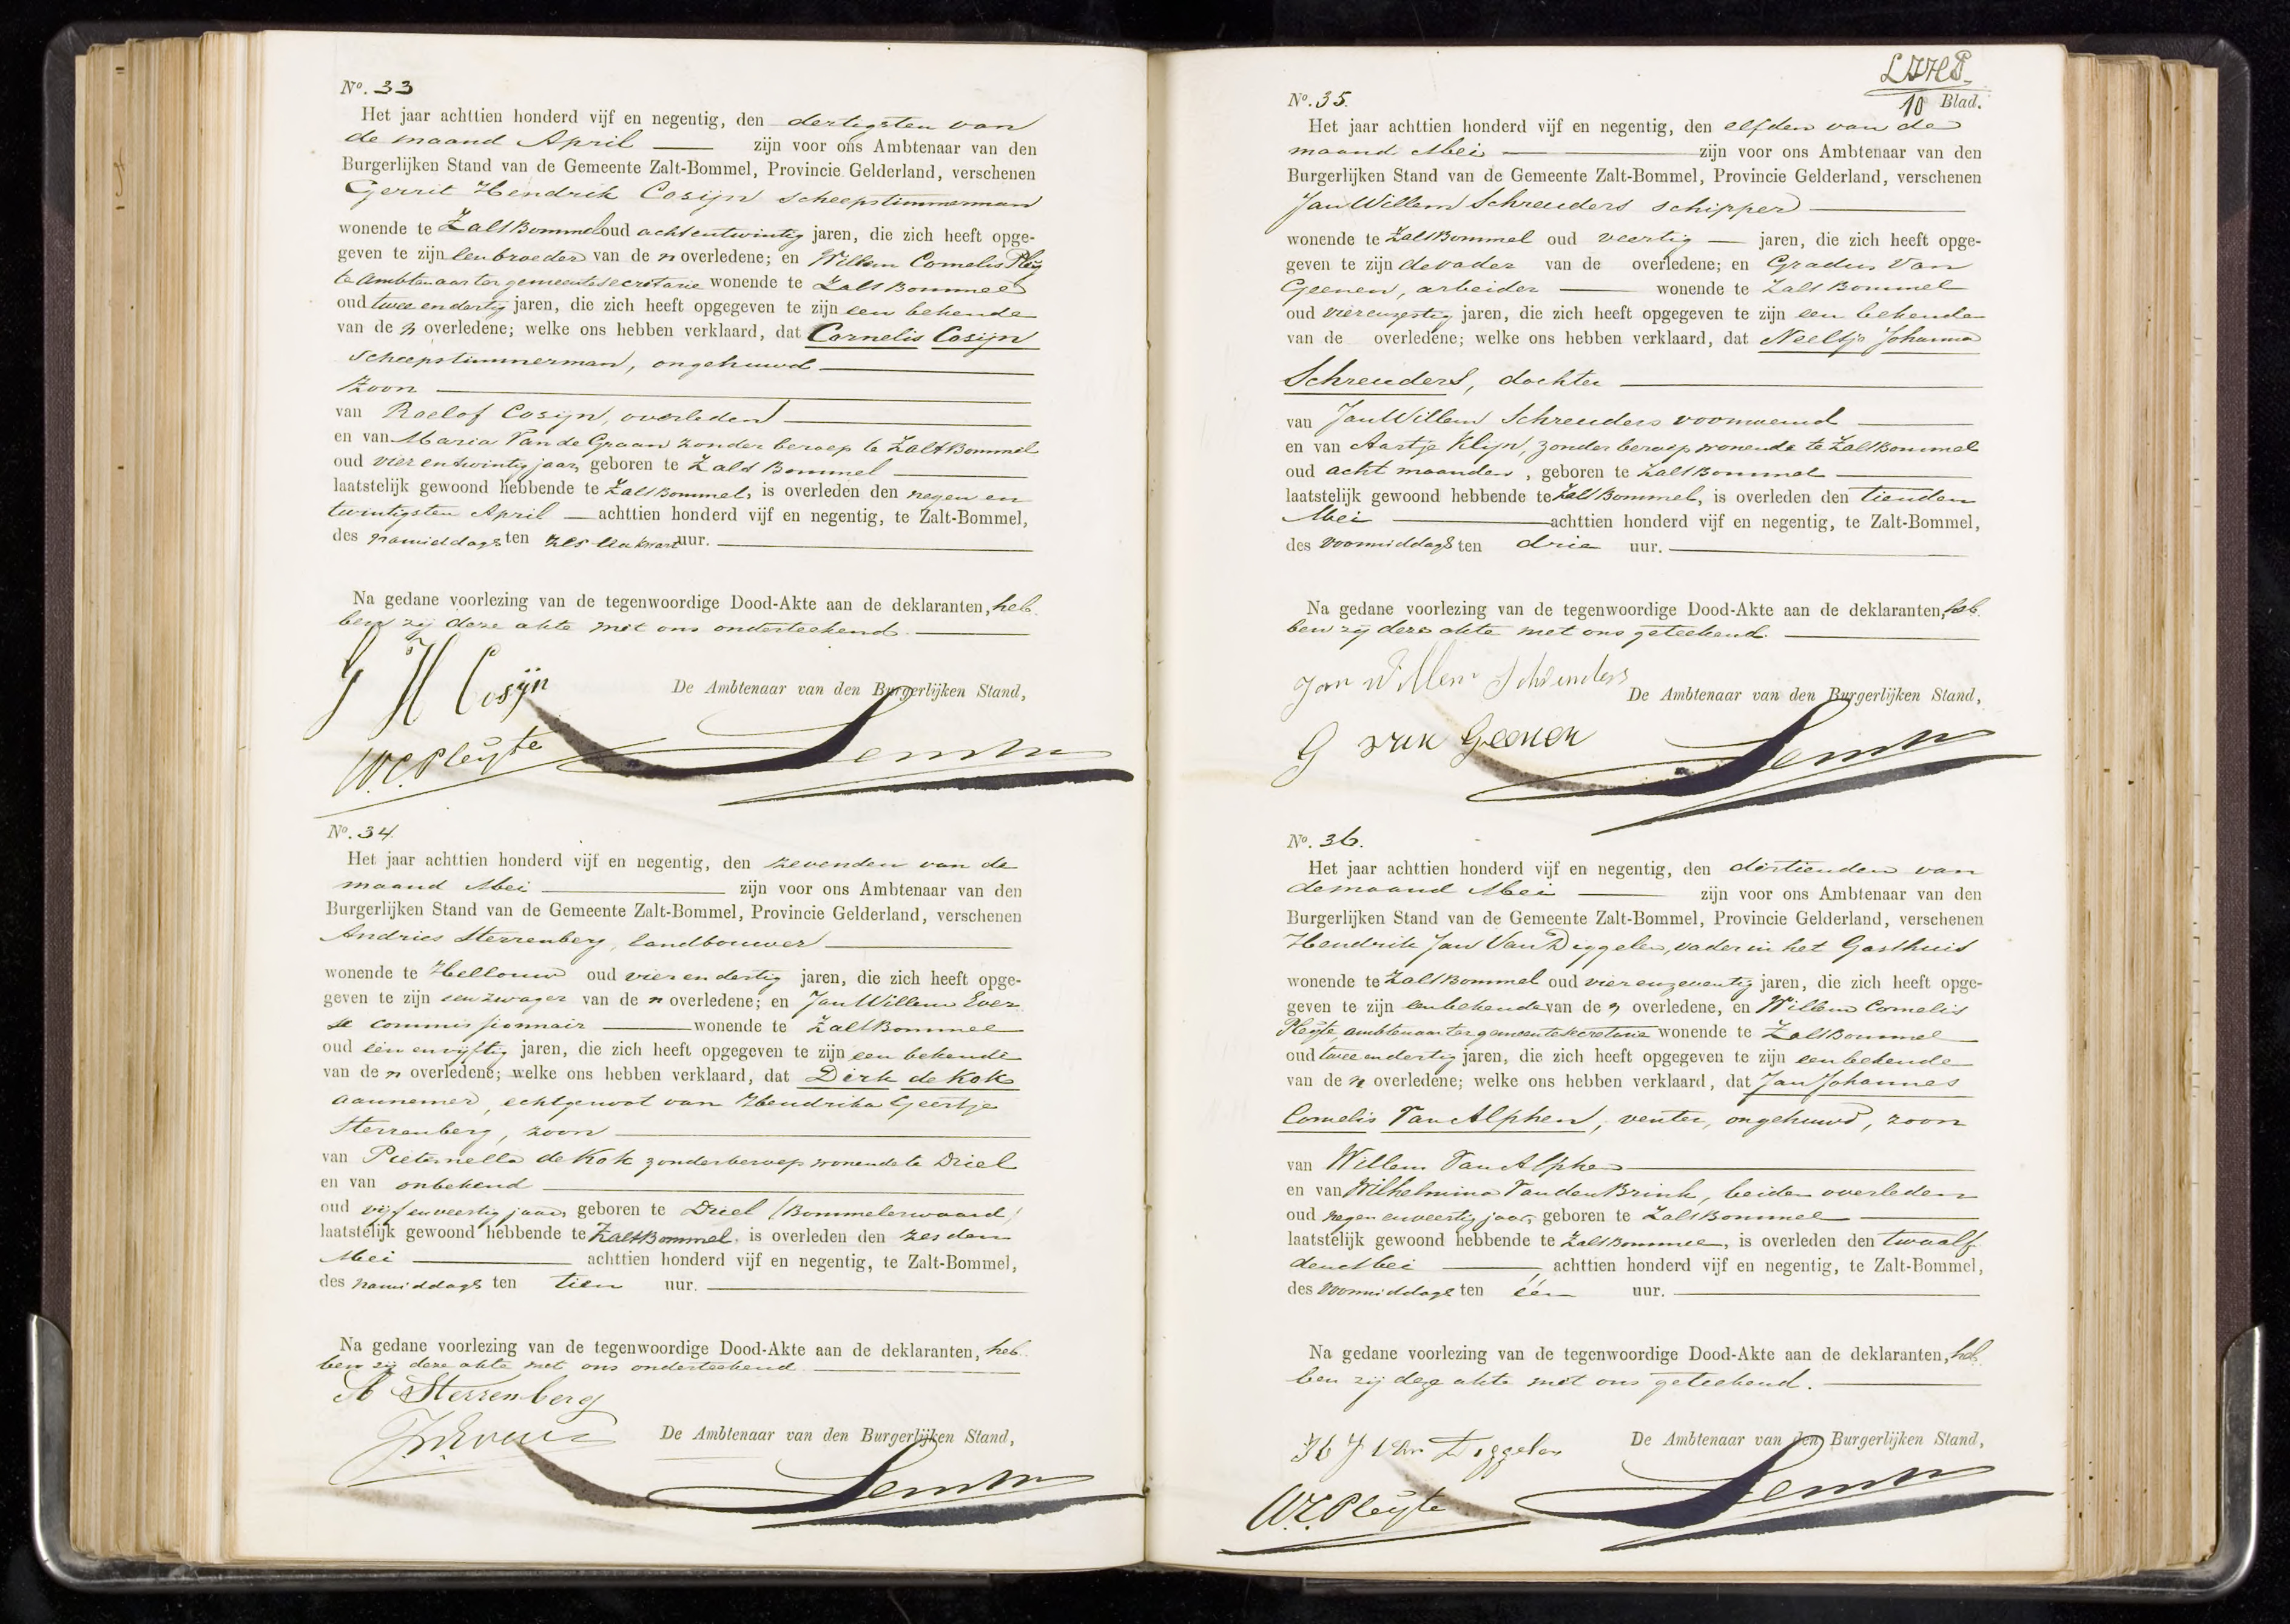 No. 33
Het jaar achttien honderd vijf en negentig, den dertigsten van
de maand April zijn voor ons Ambtenaar van den
Burgerlijken Stand van de Gemeente Zalt-Bommel, Provincie Gelderland, verschenen
Gerrit Hendrik Cosijn scheepstimmerman
wonende te ZaltBommel oud achtentwintig jaren, die zich heeft opge-
geven te zijn een broeder van de n overledene; en Willem Cornelis Pleij
te ambtenaar ter gemeentesecretarie wonende te ZaltBommel
oud twee en dertig jaren, die zich heeft opgegeven te zijn een bekende
van de n overledene; welke ons hebben verklaard, dat Cornelis Cosijn
scheepstimmerman, ongehuwd
zoon
van Roelof Cosijn, overleden
en van Maria Van de Graan zonder beroep te ZaltBommel
oud vier en twintig jaar, geboren te ZaltBommel
laatstelijk gewoond hebbende te ZaltBommel, is overleden den negen en
twintigsten April achttien honderd vijf en negentig, te Zalt-Bommel,
des namiddags ten zes uur.
Na gedane voorlezing van de tegenwoordige Dood-Akte aan de deklaranten, heb
ben zij deze akte met ons onderteekend.
G H Cosijn
De Ambtenaar van den Burgerlijken Stand,
W.C. Pleijte
No. 34.
Het jaar achttien honderd vijf en negentig, den zevenden van de
maand Mei zijn voor ons Ambtenaar van den
Burgerlijken Stand van de Gemeente Zalt-Bommel, Provincie Gelderland, verschenen
Andries Sterrenberg, landbouwer
wonende te Hellouw oud vier en dertig jaren, die zich heeft opge-
geven te zijn een zwager van de n overledene; en Jan Willem Ever
se commissionnair wonende te ZaltBommel
oud één en vijftig jaren, die zich heeft opgegeven te zijn een bekende
van de n overledene; welke ons hebben verklaard, dat Dirk de Kok
aannemer, echtgenoot van Hendrika Geertje
Sterrenberg, zoon
van Pieternella de Kok zonder beroep wonende te Driel
en van onbekend
oud vijf en veertig jaar, geboren te Driel (Bommelerwaard)
laatstelijk gewoond hebbende te ZaltBommel, is overleden den zesden
Mei achttien honderd vijf en negentig, te Zalt-Bommel,
des namiddags ten tien uur.
Na gedane voorlezing van de tegenwoordige Dood-Akte aan de deklaranten, heb
ben zij deze akte met ons onderteekend.
A Sterrenberg
De Ambtenaar van den Burgerlijken Stand,
10 Blad.
No. 35.
Het jaar achttien honderd vijf en negentig, den elfden van de
maand Mei zijn voor ons Ambtenaar van den
Burgerlijken Stand van de Gemeente Zalt-Bommel, Provincie Gelderland, verschenen
Jan Willem Schreuders schipper
wonende te ZaltBommel oud veertig jaren, die zich heeft opge-
geven te zijn de vader van de overledene; en Gradus Van
Geenen, arbeider wonende te ZaltBommel
oud vierenzestig jaren, die zich heeft opgegeven te zijn een bekende
van de overledene; welke ons hebben verklaard, dat Neeltje Johanna
Schreuders, dochter
van Jan Willem Schreuders voornoemd
en van Aartje Klijn, zonder beroep wonende te ZaltBommel
oud acht maanden, geboren te ZaltBommel
laatstelijk gewoond hebbende te ZaltBommel, is overleden den tienden
Mei achttien honderd vijf en negentig, te Zalt-Bommel,
des voormiddags ten drie uur.
Na gedane voorlezing van de tegenwoordige Dood-Akte aan de deklaranten, heb
ben zij deze akte met ons geteekend.
Jan Willem Schreuders
De Ambtenaar van den Burgerlijken Stand,
G van Geenen
No. 36.
Het jaar achttien honderd vijf en negentig, den dertienden van
de maand Mei zijn voor ons Ambtenaar van den
Burgerlijken Stand van de Gemeente Zalt-Bommel, Provincie Gelderland, verschenen
Hendrik Jan Van Diggelen, vader in het Gasthuis
wonende te ZaltBommel oud vier en zeventig jaren, die zich heeft opge-
geven te zijn een bekende van de n overledene, en Willem Cornelis
Pleijte, ambtenaar ter gemeentesecretarie wonende te ZaltBommel
oud twee en dertig jaren, die zich heeft opgegeven te zijn een bekende
van de n overledene; welke ons hebben verklaard, dat Jan Johannes
Cornelis Van Alphen, venter, ongehuwd, zoon
van Willem Van Alphen
en van Wilhelmina Van den Brink, beiden overleden
oud negen en veertig jaar, geboren te ZaltBommel
laatstelijk gewoond hebbende te ZaltBommel, is overleden den twaalf
den Mei achttien honderd vijf en negentig, te Zalt-Bommel,
des voormiddags ten één uur.
Na gedane voorlezing van de tegenwoordige Dood-Akte aan de deklaranten, heb
ben zij deze akte met ons geteekend.
H J Van Diggelen
De Ambtenaar van den Burgerlijken Stand,
W.C. Pleijte